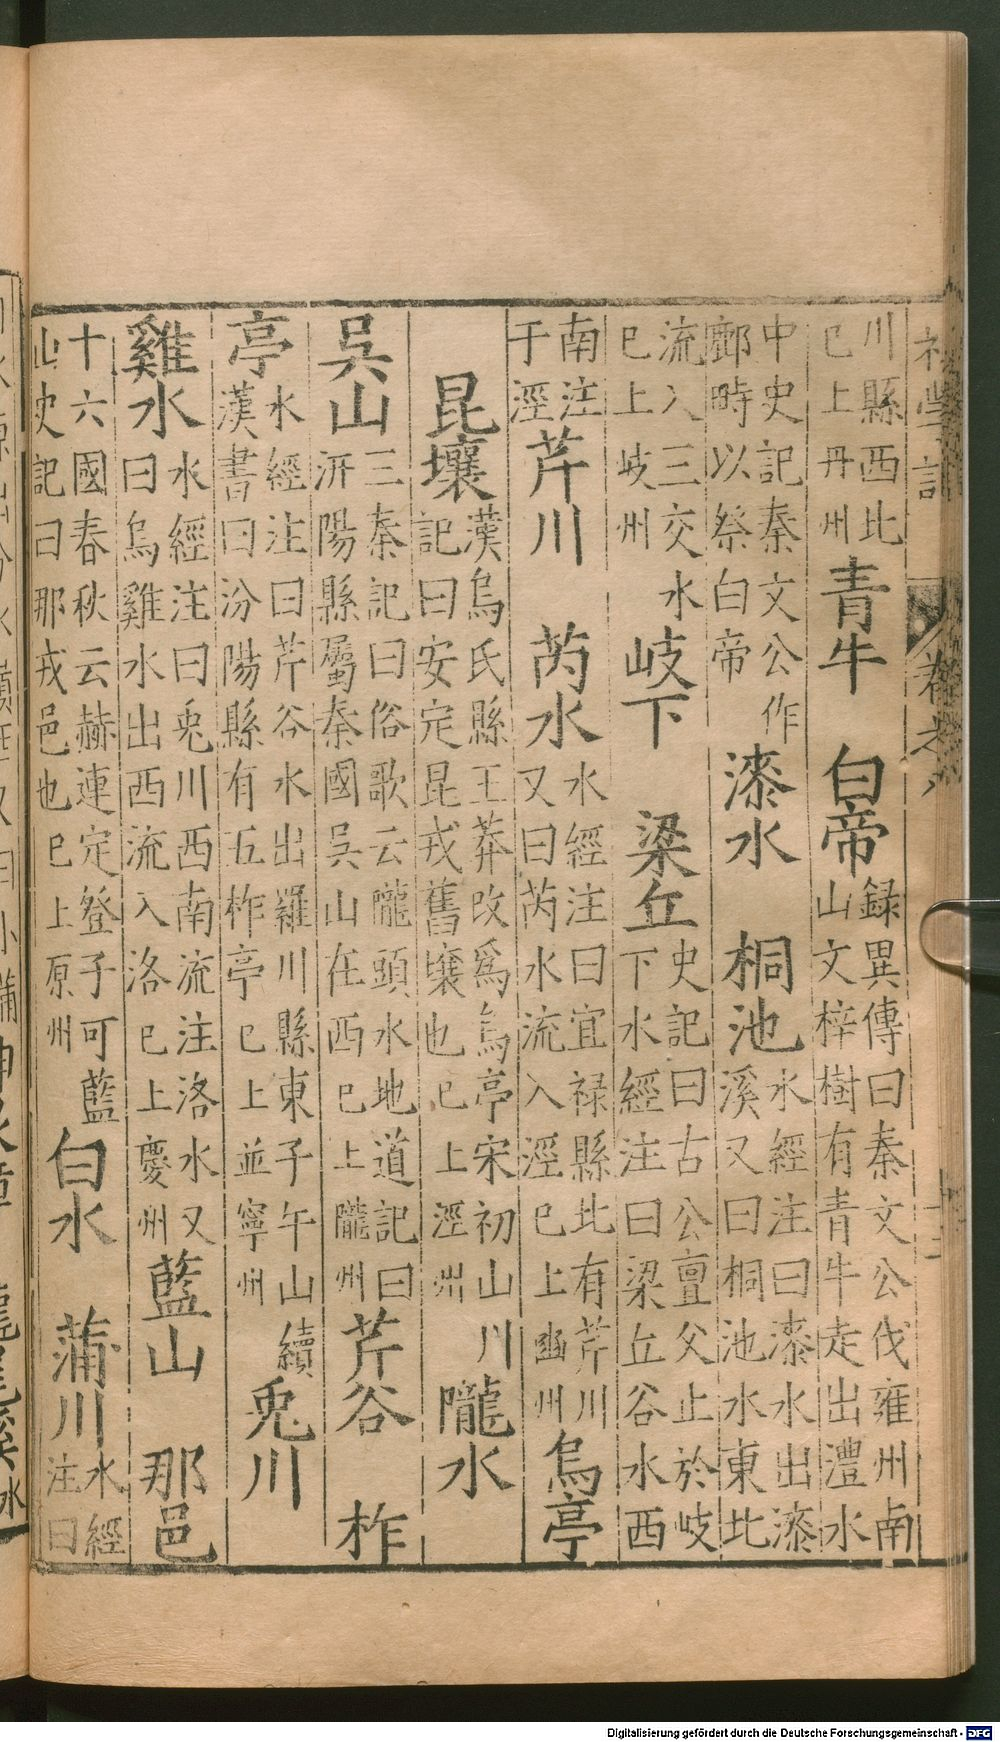 初學記 卷之八
川縣西北巳上丹州 青牛 白帝 錄異傳曰秦文公伐雍州南山文梓樹有青牛走出澧水
中史記秦文公作鄜畤以祭白帝 漆水 桐池 水經注曰漆水出漆溪又曰桐池水東北
流入三交水巳上岐州 岐下 梁丘 史記曰古公亶父止於岐下水經注曰梁丘谷水西
南注于涇 芹川 芮水 水經注曰宜祿縣北有芹川又曰芮水流入涇巳上幽州 烏亭
昆壤 漢烏氏縣王莽改爲烏亭宋初山川記曰安定昆戎舊壤也巳上涇州 隴水
吳山 三秦記曰俗歌云隴頭水地道記曰汧陽縣屬秦國吳山在西巳上隴州 芹谷 柞
亭 水經注曰芹谷水出羅川縣東子午山續漢書曰汾陽縣有五柞亭巳上並寧州 兎川
雞水 水經注曰兎川西南流注洛水又曰烏雞水出西流入洛巳上慶州 藍山 那邑
十六國春秋云赫連定登子可藍山史記曰那戎邑也巳上原州 白水 蒲川 水經注曰
Digitalisierung gefördert durch die Deutsche Forschungsgemeinschaft - DFG